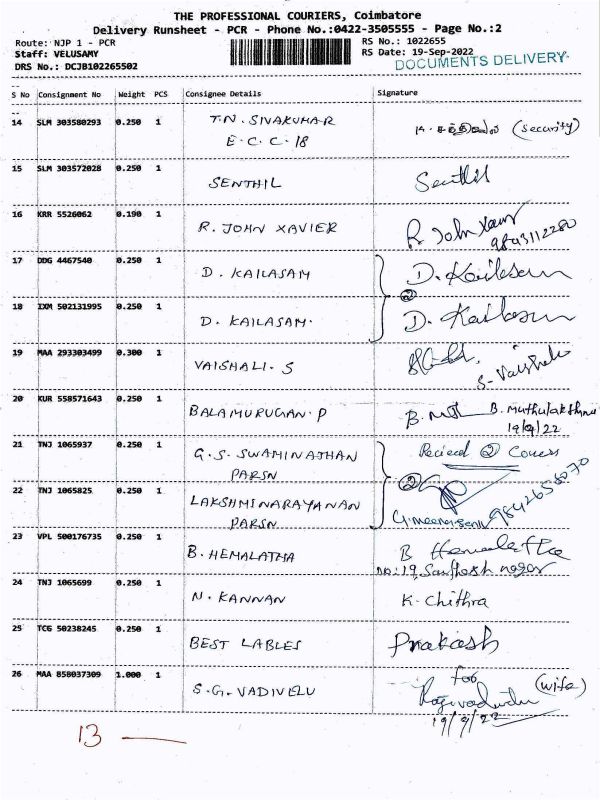 THE PROFESSIONAL COURIERS, Coimbatore
Delivery Runsheet - PCR - Phone No.:0422-3505555 - Page No.:2
Route: NJP 1 - PCR
Staff: VELUSAMY
DRS No.: DCJB102265502
RS No.: 1022655
RS Date: 19-Sep-2022
DOCUMENTS DELIVERY
S No Consignment No Weight PCS Consignee Details Signature
14 SLM 303580293 0.250 1 T.N. SIVAKUMAR (security)
E.C.C-18
15 SLM 303572028 0.250 1 SENTHIL Senthil
16 KRR 5526062 0.190 1 R. JOHN XAVIER R John Xavier
9843112280
17 DDG 4467540 0.250 1 D. KAILASAM D. Kailasam
②
18 IXM 502131995 0.250 1 D. KAILASAM. D. Kailasam
19 MAA 293303499 0.300 1 VAISHALI. S
S. Vaishali
20 KUR 558571643 0.250 1 BALAMURUGAN. P B. Muthulakshmi
19/9/22
21 TNJ 1065937 0.250 1 G.S. SWAMINATHAN Recieed ② Covers
PARSN
②
22 TNJ 1065825 0.250 1 LAKSHMINARAYANAN
PARSN
23 VPL 500176735 0.250 1 B. HEMALATHA B Hemalatha
no: 19, Santhosh nagar
24 TNJ 1065699 0.250 1 N. KANNAN K. Chithra
25 TCG 50238245 0.250 1 BEST LABLES Prakash
26 MAA 858037309 1.000 1 S.G. VADIVELU for
(wife)
19/9/22
13